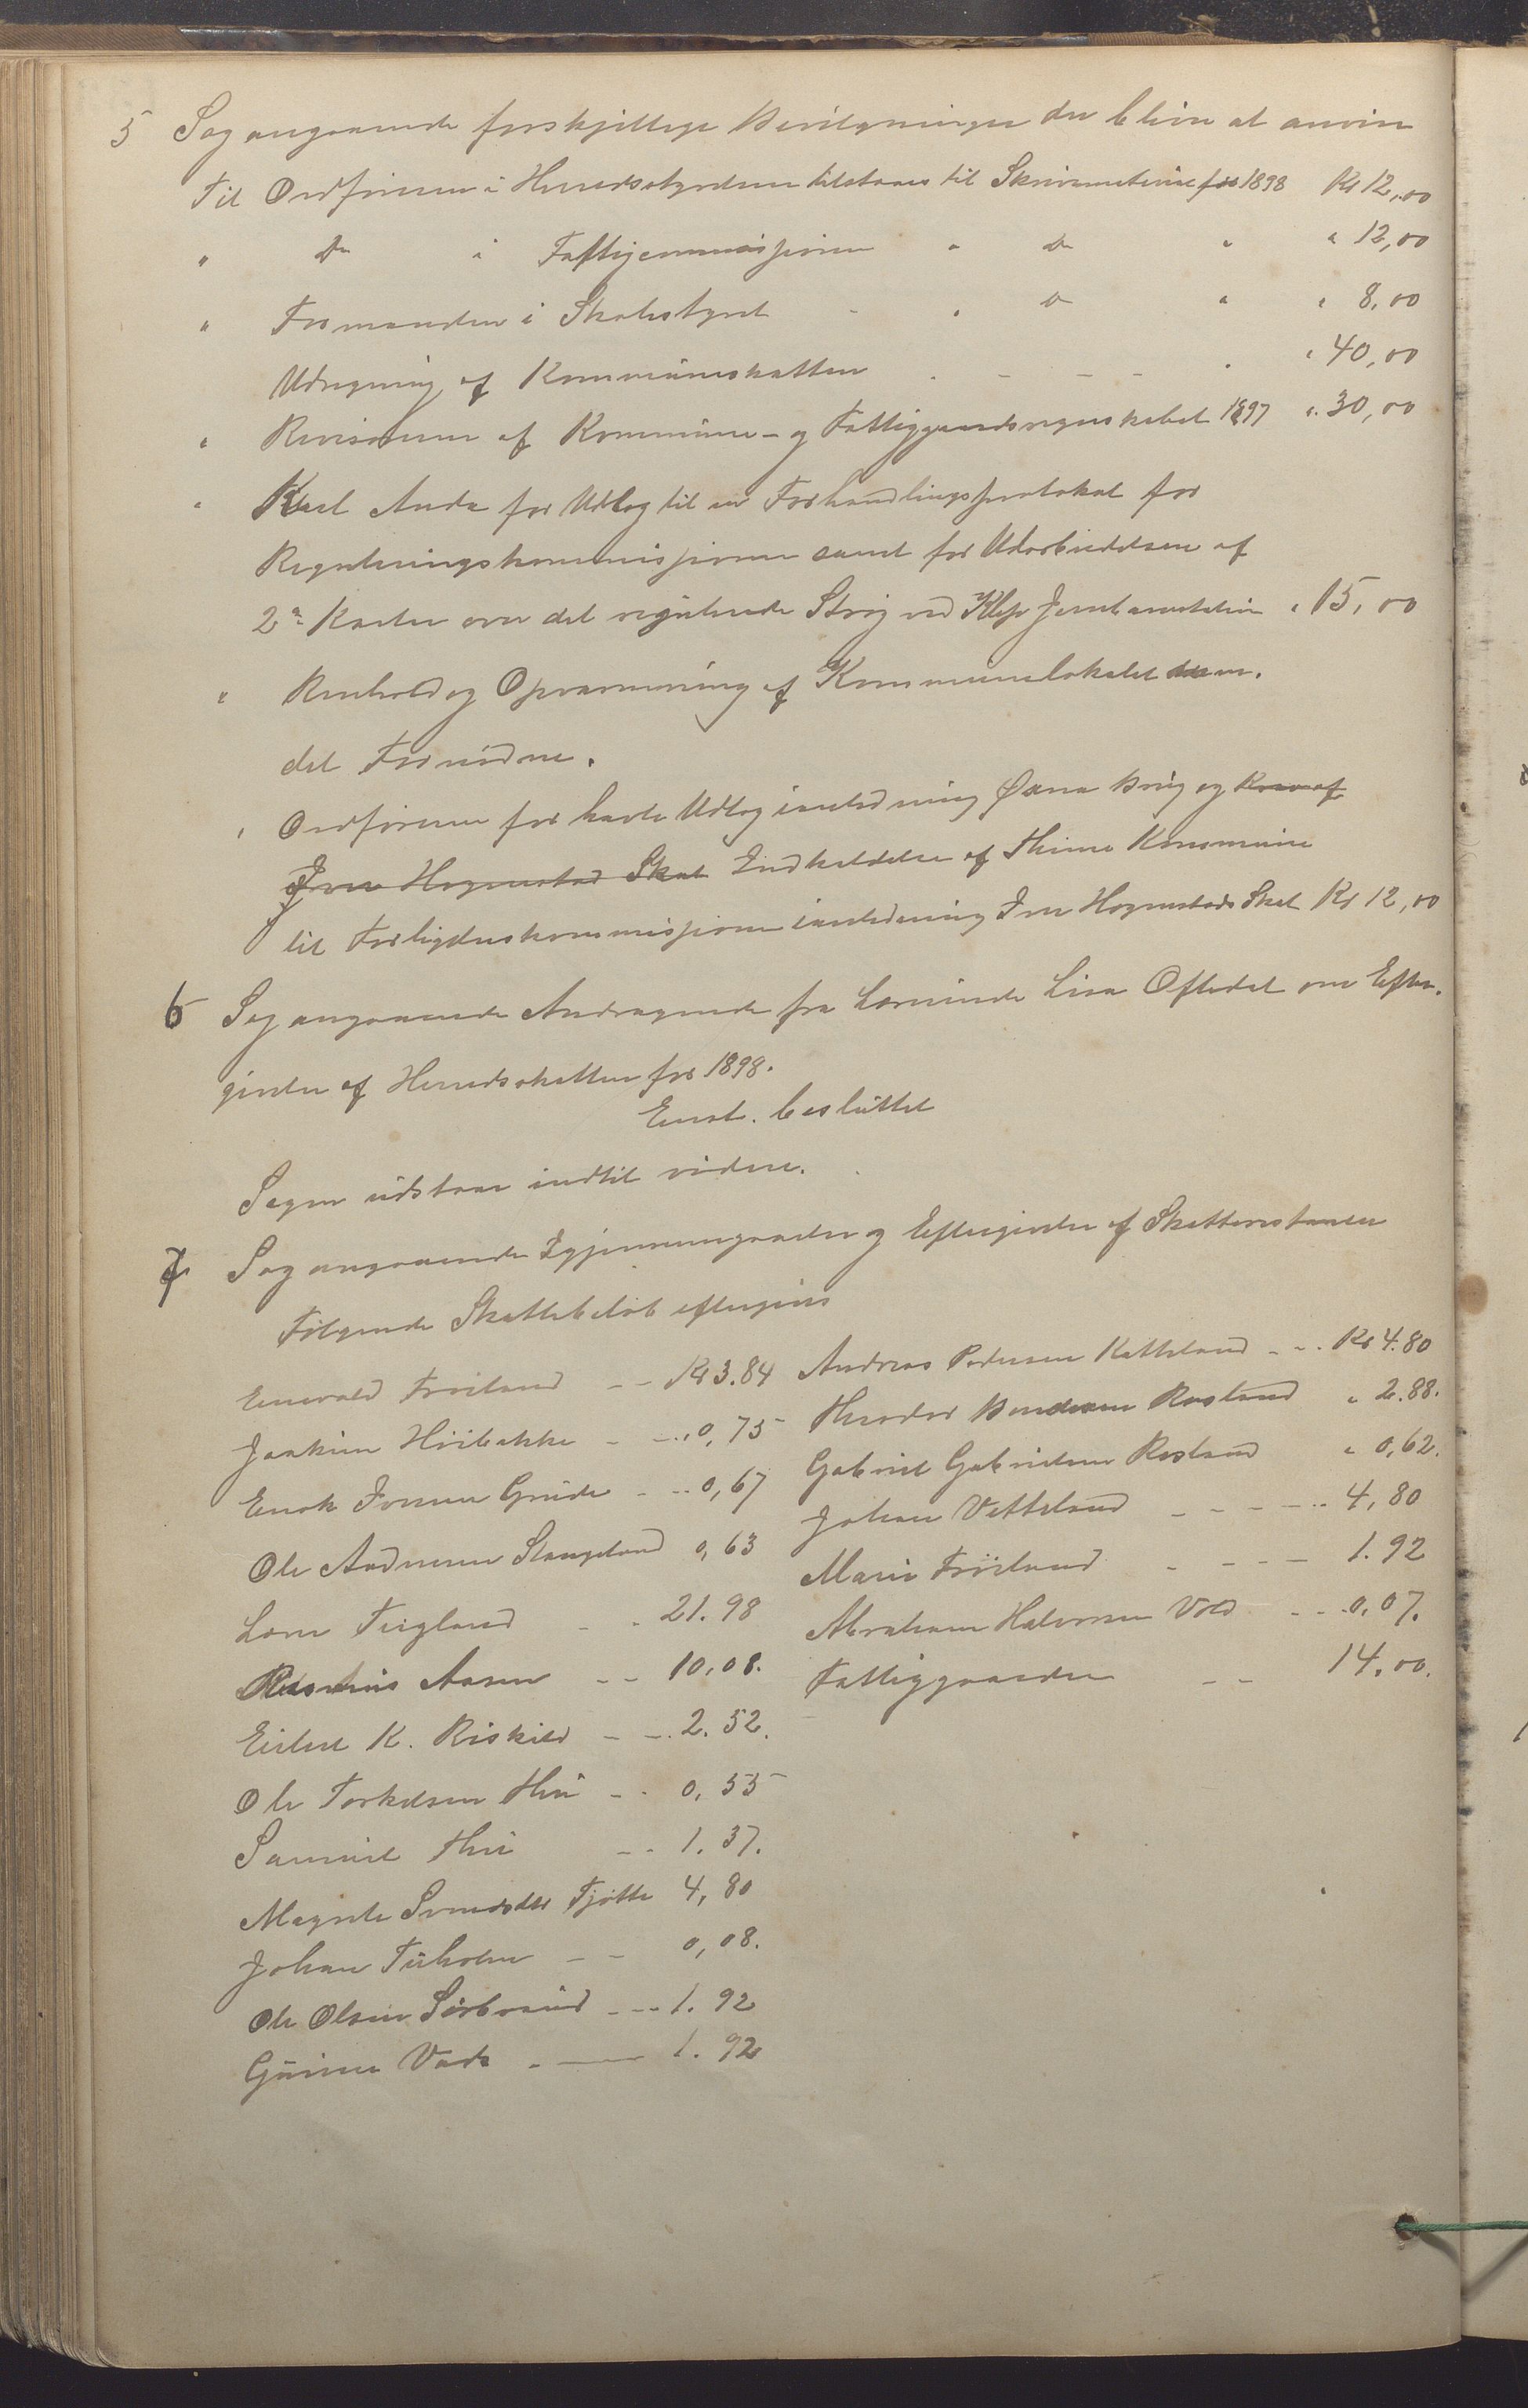 5 Sag angaaende forskjellige Bevilgninger der bliver at anvise
Til Ordføreren i Herredsstyrelsen tilstaaes til Skrivemateriel for 1898 Kr 12,00
" Do i Fattigcommissjonen " Do " " 12,00
" Formanden i Skolestyret - " Do " " 8,00
Udregning af Kommuneskatten " 40,00
" Revisorerne af Kommune- og Fattiggaardsregnskabet 1897 " 30,00
" Karl Anda for Udlæg til en Forhandlingsprotokol for
Reguleringskommissjonen samt for Udarbeidelsen af
2de Karter over det regulerede Strøg ved Klep Jernbanestation " 15,00
" Renhold og Opvarmning af Kommunelokalet m.
det Fornødne.
" Ordføreren for havte Udlæg i anledning Øxna Brug og Krav af
Iver Hognestad Skat Indkaldelse af Thime Kommune
til Forligelseskommissjonen i anledning Iver Hognestads Skat Kr 12,00
6 Sag angaaende Andragende fra Lærerinde Lisa Oftedal om Efter-
givelse af Herredsskatten for 1898.
Enst. besluttet
Sagen udstaar indtil videre.
7 Sag angaaende Igjennemgaaelse og Eftergivelse af Skatterestancer
Følgende Skattebeløb eftergives
Enevald Frøiland - - Kr 3.84
Joakim Høibakke - - 0,75
Enok Iversen Grude - - 0,67
Ole Andersen Stangeland 0,63
Lars Tiigland - - 21.98
Rasmus Aasen - - 10,08.
Eilert K. Riskild - - 2.52.
Ole Torkelsen Hu - - 0,55
Samuel Hu - - 1.37.
Magrete Svendsdtr Tjøtta 4,80
Johan Tuholm - - 0,08.
Ole Olsen Sørbrød - - 1.92
Gunner Vada - - 1.92
Andreas Pedersen Katteland - - Kr 4.80
Theodor Bendixen Rosland " 2.88.
Gabriel Gabrielsen Rosland " 0,62.
Johan Vetteland - - - 4,80
Marie Frøiland - - - 1.92
Abraham Halvorsen Vold - - 0,07.
Fattiggaarden - - 14,00.